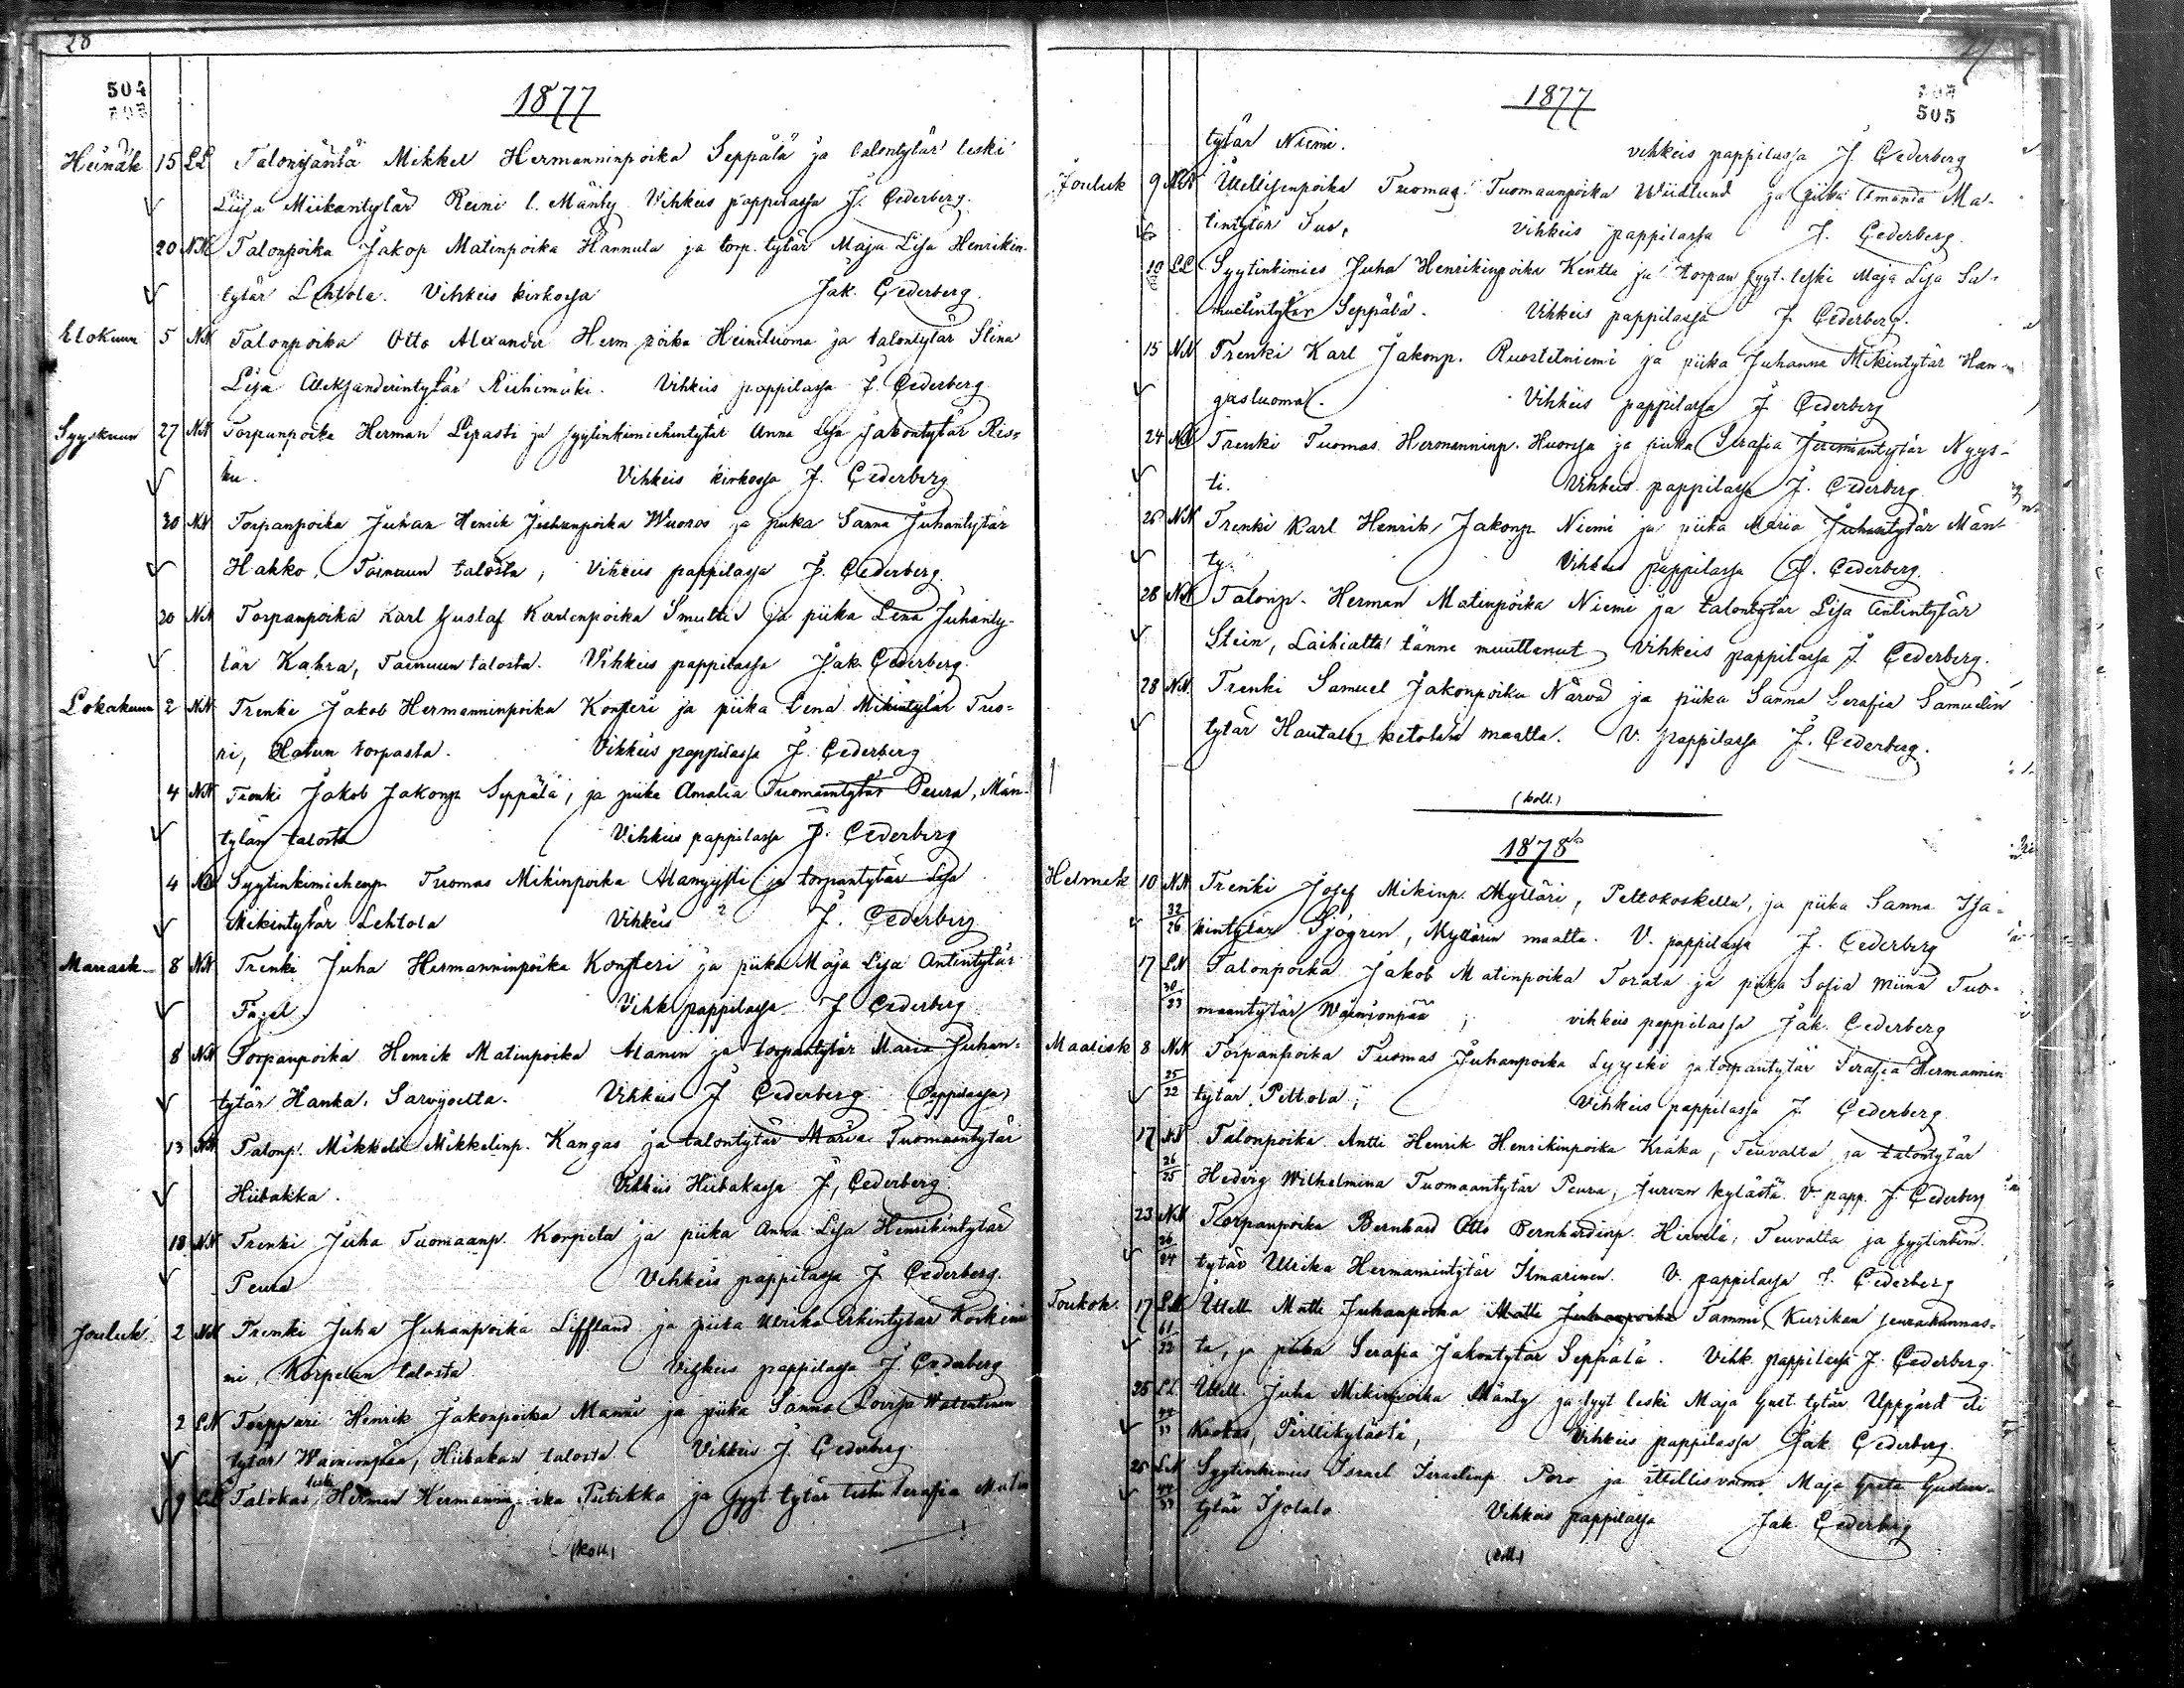 28
504
1877
Heinäk 15 LL Talonisäntä Mikkel Hermanninpoika Seppälä ja talontytär leski
Liisa Miikantytär Reini l. Mänty Vihkeis pappilassa J. Cederberg.
20 NN Talonpoika Jakop Matinpoika Hannula ja torp. tytär Maja Lisa Henrikin-
tytär Lehtola. Vihkeis kirkossa Jak. Cederberg.
Elokuun 5 NN Talonpoika Otto Alexander Herm poika Heiniluoma ja talontytär Stina
Lisa Aleksanderintytär Riihimäki. Vihkeis pappilassa J. Cederberg
Syyskuun 27 NN Torpanpoika Herman Lepasti ja syytinkimiehentytär Anna Lisa Jakontytär Ris-
ku. Vihkeis kirkossa J. Cederberg
30 NN Torpanpoika Juhan Henrik Juhanpoika Wuoros ja piika Sanna Juhantytär
Hakko, Toinuun talosta, Vihkeis pappilassa J. Cederberg.
30 NN Torpanpoika Karl Gustaf Karlenpoika Smulter ja piika Lena Juhanty-
tär Kahra, Tainuun talosta. Vihkeis pappilassa Jak. Cederberg.
Lokakuun 2 NN Trenki Jakob Hermanninpoika Konsteri ja piika Lena Mikintytär Tuo-
ri, Hatun torpasta. Vihkeis pappilassa J. Cederberg
4 NN Trenki Jakob Jakonp Seppälä, ja piika Amalia Tuomaantytär Peura, Män-
tylän talosta Vihkeis pappilassa J. Cederberg
4 NN Syytinkimiehenp Tuomas Mikinpoika Alanyysti ja torpantytär Lisa
Mikintytär Lehtola Vihkeis ? J. Cederberg
Marrask- 8 NN Trenki Juha Hermanninpoika Konsteri ja piika Maja Lisa Antintytär
Vihk pappilassa J Cederberg
8 NN Torpanpoika Henrik Matinpoika Alanen ja torpantytär Maria Juhan-
tytär Hanka, Sarvijoelta. Vihkeis J Cederberg (Pappilassa)
13 NN Talonp. Mikkeli Mikkelinp. Kangas ja talontytär Maria Tuomaantytär
Hiibakka. Vihkeis Hiibakassa J, Cederberg.
18 NN Trenki Juha Tuomaanp. Korpela ja piika Anna Lisa Henrikintytär
Peura Vihkeis pappilassa J. Cederberg.
Jouluk 2 NN Trenki Juha Juhanpoika Liffland ja piika Ulrika Erkintytär Koski
ni, Korpelan talosta Vihkeis pappilassa J. Cederberg
2 LN Torppari Henrik Jakonpoika Manni ja piika Sanna Lovisa Walentinin
tytär Wainionpää, Hiibakan talosta. Vihkeis J. Cederberg.
9 LL Talokas, leski Herman Hermanninpoika Putikka ja syyt. tytär leski Serafia Matin
(Koll.)
27
505
1877
tytär Niemi. vihkeis pappilassa J. Cederberg
Jouluk 9 NN Itsellisenpoika Tuomas Tuomaanpoika Wiidlund ja piika Amanda Ma-
tintytär Sus, vihkeis pappilassa J. Cederberg.
10 LL Syytinkimies Juha Henrikinpoika Kentta ja torpan syyt. leski Maja Lisa Sa-
muelintytär Seppälä. Vihkeis pappilassa J. Cederberg.
15 NN Trenki Karl Jakonp. Ruostetniemi ja piika Juhanna Mikintytär Han-
gasluoma. Vihkeis pappilassa J Cederberg
24 NN Trenki Tuomas Hermanninp. Huonsa ja piika Serafia Jeremiantytär Nyys-
ti. Vihkeis pappilassa J. Cederberg
26 NN Trenki Karl Henrik Jakonp Niemi ja piika Maria Juhantytär Män-
ty. Vihkeis pappilassa J. Cederberg.
28 NN Talonp. Herman Matinpoika Niemi ja talontytär Lisa Antintytär
Stein, Laihialta tänne muuttanut, Vihkeis pappilassa J. Cederberg.
28 NN. Trenki Samuel Jakonpoika Närvä ja piika Sanna Serafia Samuelin
tytär Hautala, ketolan maalta. V. pappilassa J. Cederberg.
(koll.)
1878
Helmik 10 NN Trenki Josef Mikinp. Mylläri, Peltokoskella, ja piika Sanna Isa-
32/26 kintytär Sjögren, Myllärin maalta. V. pappilassa J. Cederberg
17 LN Talonpoika Jakob Matinpoika Torata ja piika Sofia Miina Tuo-
30/23 maantytär Wainionpää, vihkeis pappilassa Jak. Cederberg
Maalisk 8 NN Torpanpoika Tuomas Juhanpoika Lyyski ja torpantytär Serafia Hermannin
25/22 tytär Peltola, Vihkeis pappilassa J. Cederberg
17 NN Talonpoika Antti Henrik Henrikinpoika Kräka, Teuvalta ja talontytär
26/25 Hedvig Wilhelmina Tuomaantytär Peura, Jurvan kylästä. V. papp. J. Cederberg
23 NN Torpanpoika Bernhard Otto Bernhardinp. Hirvelä, Teuvalta ja syytinkim.
36/24 tytär Ulrika Hermannintytär Ilmarinen. V. pappilassa J. Cederberg
Toukok. 17 LN Itsell. Matti Juhanpoika Matti Juhanpoika Tammi, Kurikan seurakunnas-
61/32 ta, ja piika Serafia Jakontytär Seppälä. Vihk. pappilassa J. Cederberg.
25 LL Itsell. Juha Mikinpoika Mänty ja syyt leski Maja Gust. tytär Uppgård eli
44/53 Koskas, Pirttikylästä, Vihkeis pappilassa Jak. Cederberg.
25 LN Syytinkimies Israel Israelinp Poro ja itsellisvaimo Maja Greta Gustav-
44/53 tytär Isotalo Vihkeis pappilassa Jak. Cederberg
(koll.)